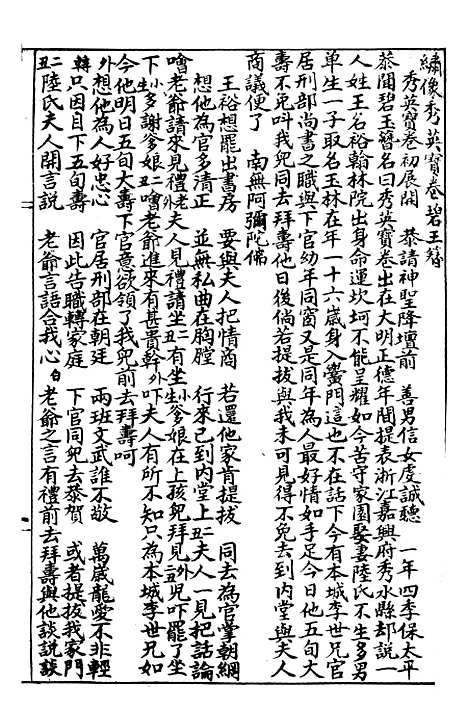 繡像秀英寳卷碧玉簪
秀英寳卷初展開　恭請神聖降壇前　善男信女虔誠聽　一年四季保太平
恭聞碧玉簪名曰秀英寳卷出在大明正德年間提表浙江嘉興府秀水縣却說一
人姓王名裕翰林院出身命運坎坷不能呈耀如今苦守家園娶妻陸氏不生多男
單生一子取名玉林在年一十六歲身入黌門這也不在話下今有本城李世兄官
居刑部尚書之職與下官幼年同窗又是同年為人最好情如手足今日他五旬大
壽不免叫我兒同去拜壽他日後倘若提拔與我未可見得不免去到內堂與夫人
商議便了　南無阿彌陀佛
王裕想罷出書房　要與夫人把情商　若還他家肯提拔　同去為官掌朝綱
想他為官多清正　並無私曲在胸膛　行來已到內堂上丑二夫人一見把話論
噲老爺請來見禮老夫人見禮請坐丑二有坐生小爹娘在上孩兒拜見外丑二兒吓罷了坐
下生小多謝爹娘丑二噲老爺進來有甚貴幹外吓夫人有所不知只為本城李世兄如
今他明日五旬大壽下官意欲領了我兒前去拜壽呵
外想他為人好忠心　官居刑部在朝廷　兩班文武誰不敬　萬歲龍愛不非輕
轉只因目下五旬壽　因此告職轉家庭　下官同兒去恭賀　或者提拔我家門
丑二陸氏夫人開言說　老爺言語合我心白老爺之言有禮前去拜壽與他談說談